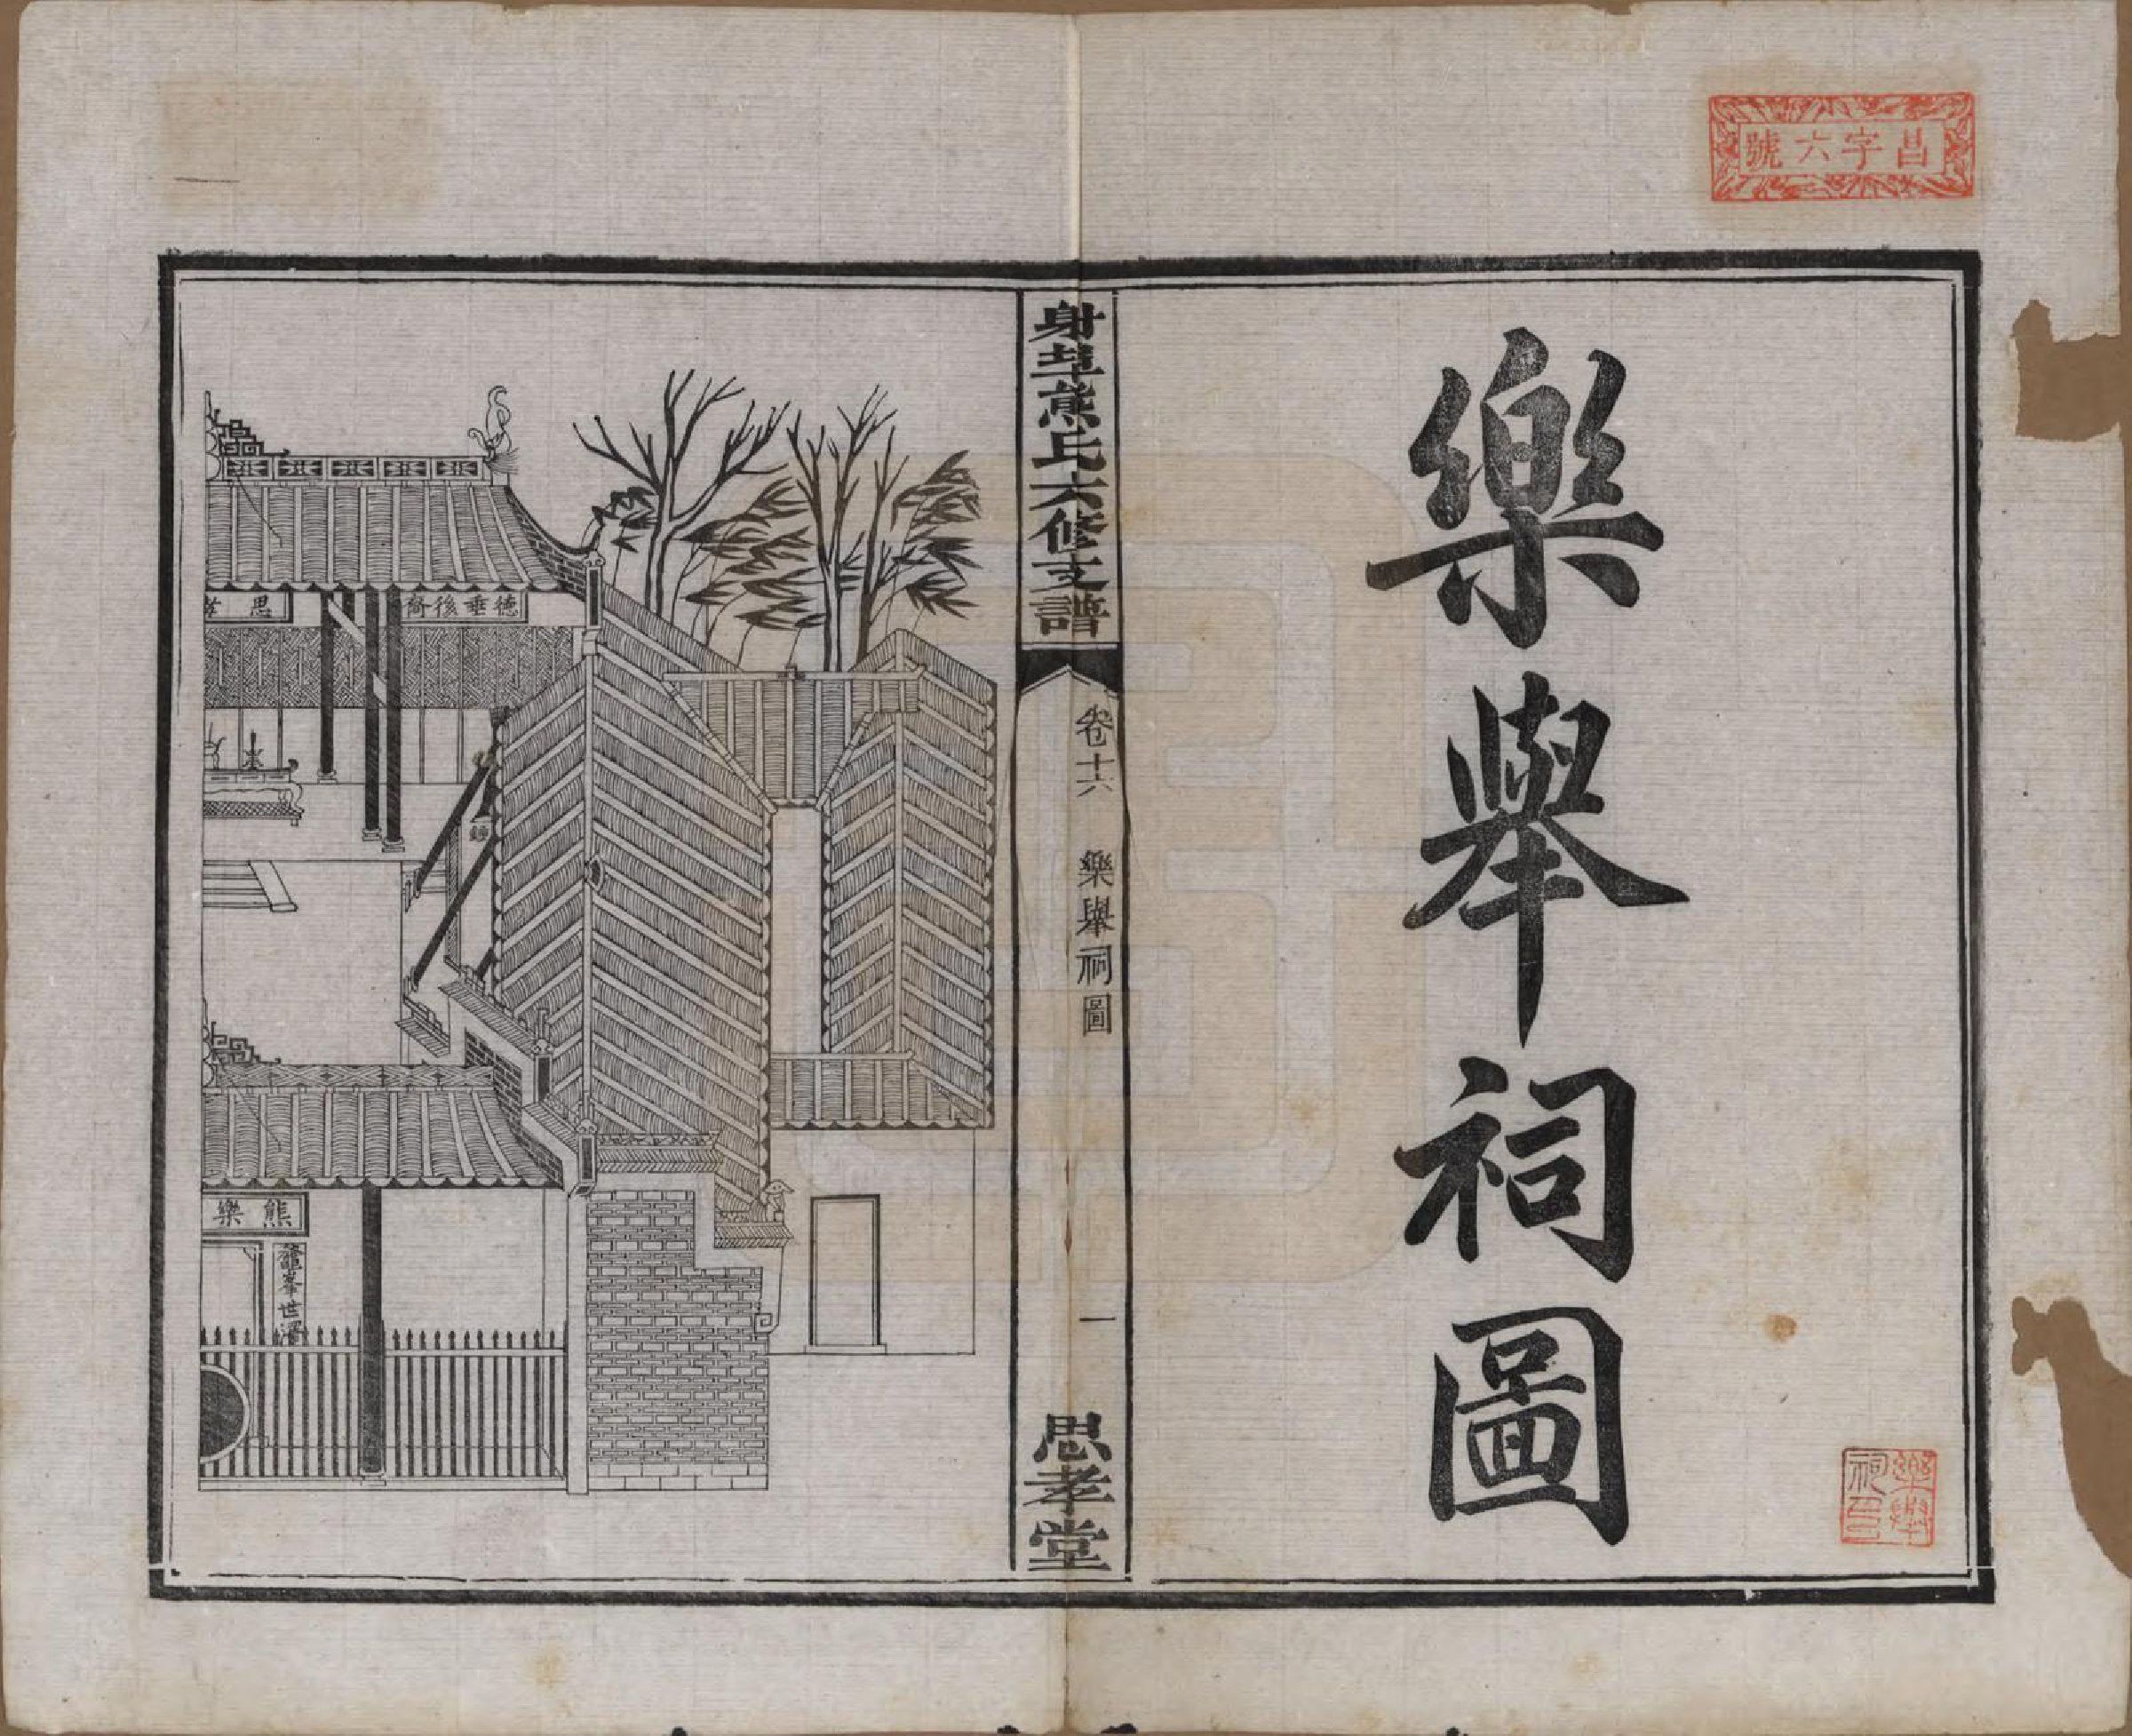 昌字六號
樂舉祠圖
樂舉祠印
身埠熊氏六修支譜
卷十六
樂舉祠圖
一
思孝堂
德垂後裔
思孝
鐘
熊樂
龍峯世澤